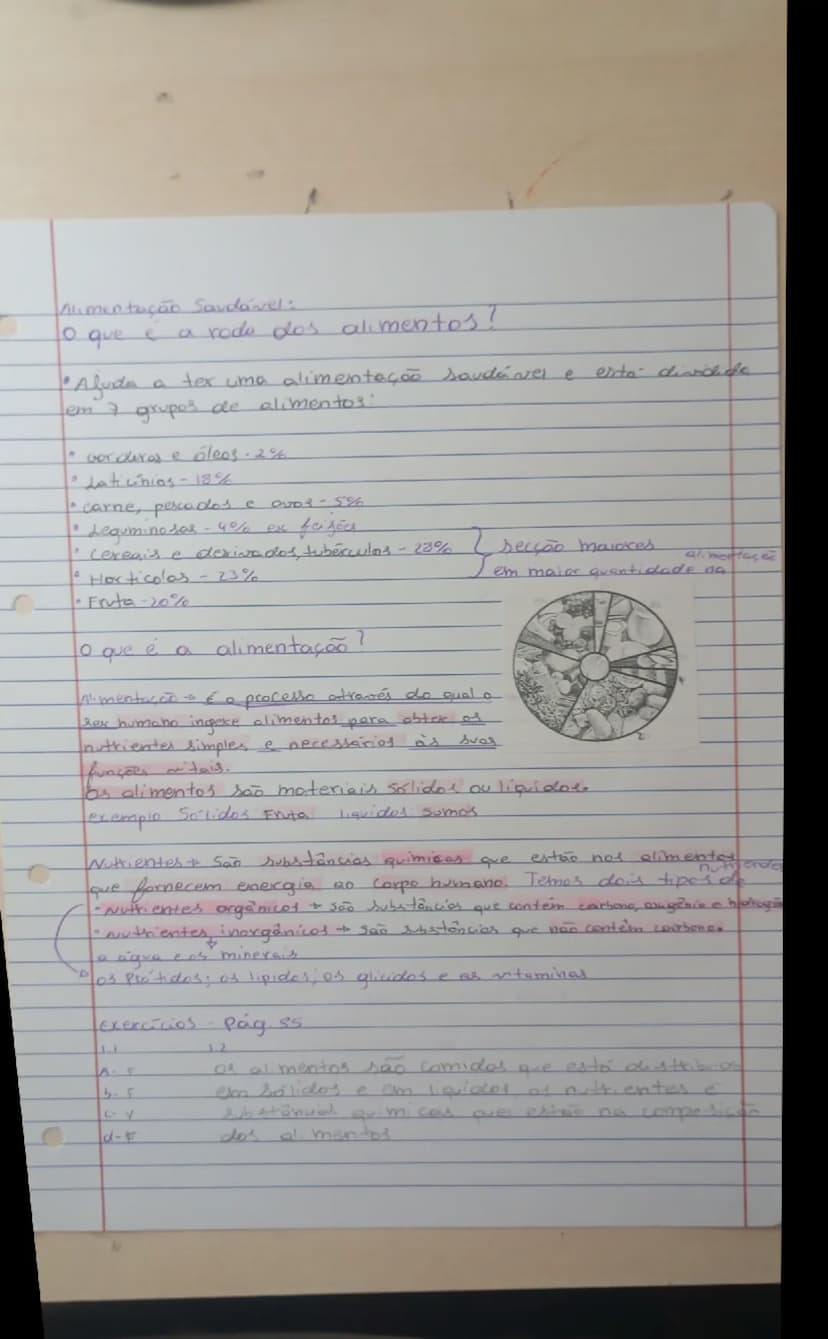 Alimentação Saudável:
O que é a roda dos alimentos?
• Ajuda a ter uma alimentação saudável e está dividida
em 7 grupos de alimentos:
• Gorduras e óleos - 2%
• Laticínios - 18%
• carne, pescados e ovos - 5%
• Leguminosas - 4% ex feijões
• Cereais e derivados, tubérculos - 28% } secção maiores
• Hortícolas - 23% em maior quantidade na alimentação
• Fruta - 20%
O que é a alimentação?
Alimentação → É o processo através do qual o
ser humano ingere alimentos para obter os
nutrientes simples e necessários às suas
funções vitais.
Os alimentos são materiais sólidos ou líquidos.
exemplo Sólidos Fruta líquidos sumos
Nutrientes → São substâncias químicas que estão nos alimentos
que fornecem energia ao corpo humano. Temos dois tipos de nutrientes
• Nutrientes orgânicos → são substâncias que contém carbono, oxigénio e hidrogénio
• nutrientes inorgânicos → são substâncias que não contém carbono.
a água e os minerais
os Prótidos; os lípidos; os glícidos e as vitaminas
Exercícios - Pág. 55
1.1 1.2
A- F Os alimentos são comidas que está distribuos
b- F em sólidos e em líquidos os nutrientes é
c- V substâncias químicas que estão na composição
d- F dos alimentos